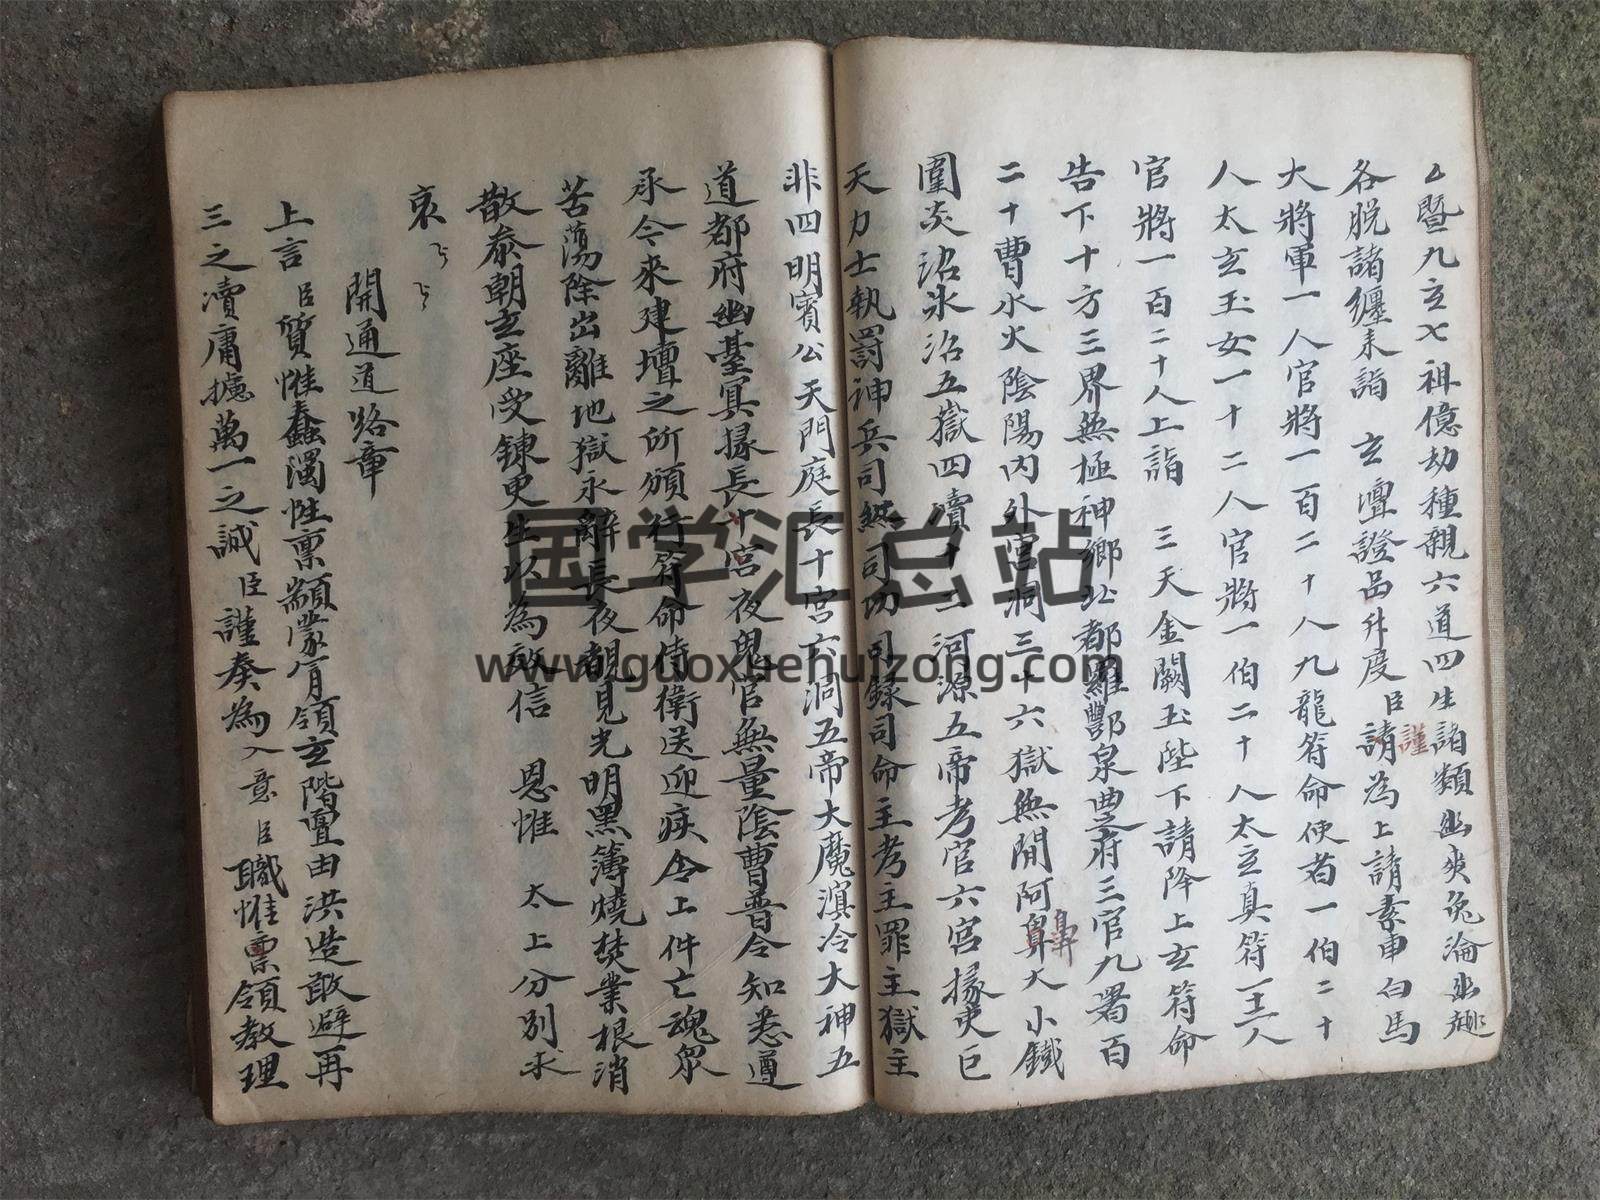 厶暨九玄七祖億劫種親六道四生諸類幽爽兔淪幽趣
各脱諸纏来詣 玄壇證品升度臣謹請為上請素車白馬
大將軍一人官將一百二十八九龍符命使者一伯二十
人太玄玉女一十二人官將一伯二十人太玄真符一十二人
官將一百二十人上詣 三天金闕玉陛下請降上玄符命
告下十方三界無極神鄉北都羅酆泉曲之府三官九署百
二十曹水火陰陽内外宫洞三十六獄無間阿鼻大小鐵
圍炎沼氷沼五獄四瀆十二河源五帝考官六宫掾吏巨
天力士執罰神兵司無司功司録司命主考主罪主獄主
非四明賓公天門庭長十宫六洞五帝大魔滇冷大神五
道都府幽臺冥掾長十宫夜鬼官無量陰曹普令知悉遵
承令來建壇之所頒行符命侍衛送迎疾令上件亡魂衆
苦蕩除出離地獄永辭長夜覩見光明黑簿燒焚業根消
散叅朝玄座受鍊更生以為效信 恩惟 太上分別求
哀
開通道路章
上言臣質惟蠢濁性禀顓蒙肎領玄階亶由洪造敢避再
三之凟庸攄萬一之誠臣謹奏為入意臣職惟禀領教理
国学汇总站
www.guoxuehuizong.com